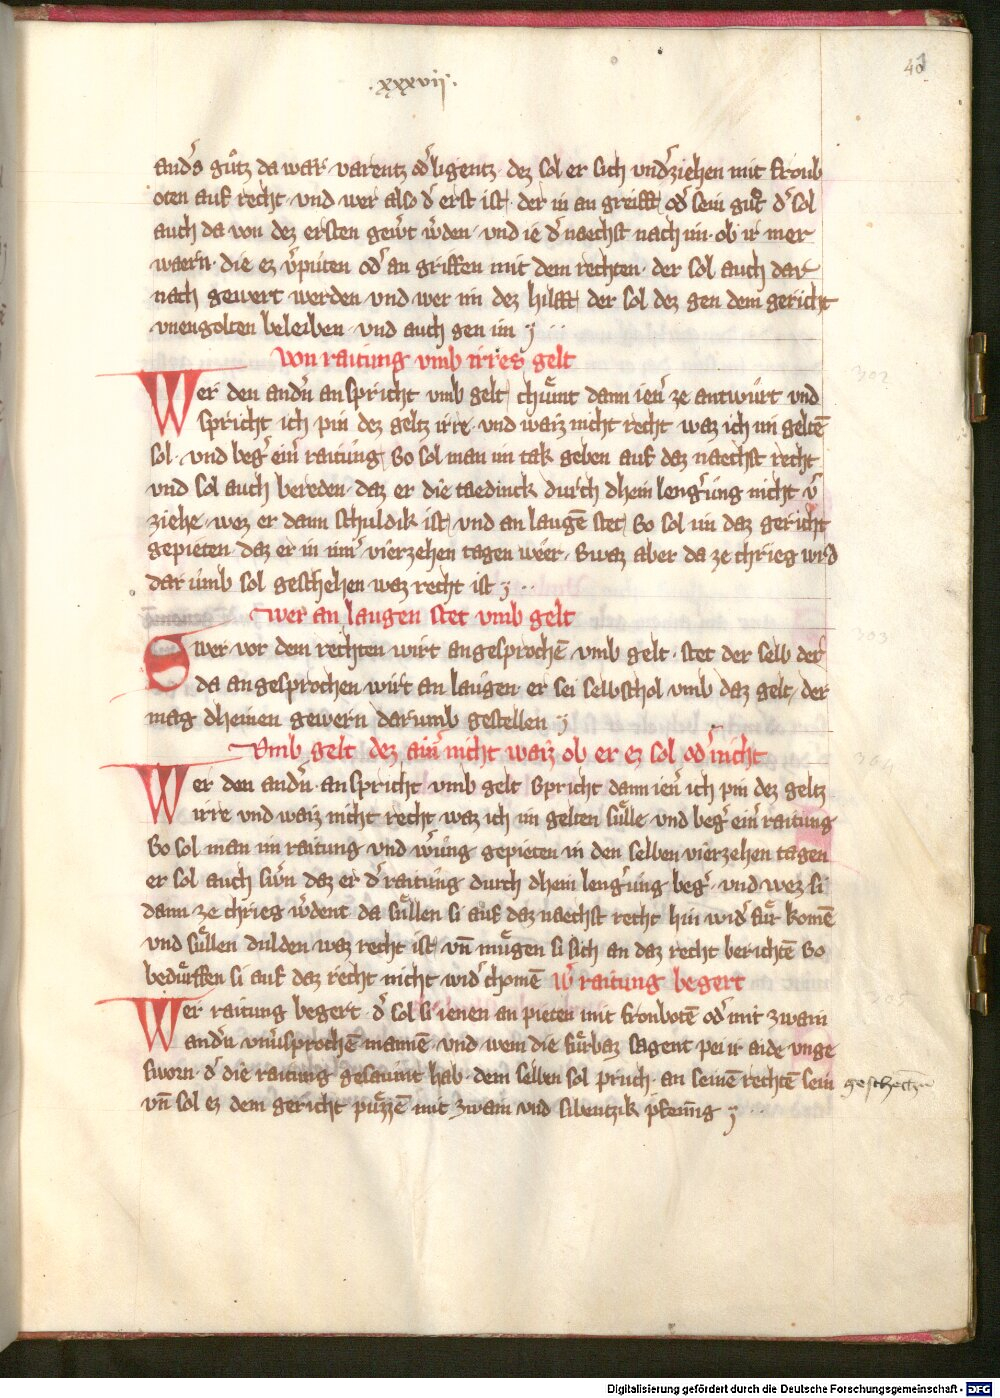 .xxxvij.
40
andˢs guͤtz da wâr varentz odˢ ligentz dez sol er sich vndˢziehen mit fronb
oten auf recht vnd wer also dˢ erst ist der in an greifft odˢ sein guͦt dˢ sol
auch da von dez ersten gewˢt wˢden vnd ie dˢ naechst nach im ob ir mer
waern die ez vˢputen odˢ an griffen mit dem rechten der sol auch dar
nach gewert werden vnd wer im dez hilfft der sol dez gen dem gericht
vnengolten beleiben vnd auch gen im
Von raitung vmb irres gelt
Wer den andˢn anspricht vmb gelt chuͤmt dann ienˢ ze antwurt vnd
spricht ich pin dez geltz irre vnd waiz nicht recht waz ich im geltē
sol vnd begˢ einˢ raitung So sol man im tak geben auf daz naechst recht
vnd sol auch bereden daz er die taedinck durch dhein lengˢung nicht vˢ
ziehe wez er dann schuldik ist vnd an laugē stet So sol im daz gericht
gepieten daz er in inrˢ vierzehen tagen weer Swaz aber da ze chrieg wird
dar umb sol geschehen waz recht ist
Wer an laugen stet vmb gelt
Swer vor dem rechten wirt angesprochē vmb gelt stet der selb der
da angesprochen wirt an laugen er sei selbschol vmb daz gelt der
mag dheinen gewern darumb gestellen
Vmb gelt dez ainˢ nicht waiz ob er ez sol odˢ nicht
Wer den andˢn anspricht vmb gelt Spricht dann ienˢ ich pin dez geltz
irre vnd waiz nicht recht waz ich im gelten suͤlle vnd begˢ einˢ raitung
So sol man im raitung vnd wˢung gepieten in den selben vierzehen tagen
er sol auch swˢn daz er dˢ raitung durch dhein lengˢung begˢ vnd wez si
dann ze chrieg wˢdent da suͤllen si auf daz naechst recht hin widˢ fuͤr komē
vnd suͤllen dulden waz recht ist vn̄ muͤgen si sich an daz recht berichtē So
beduͤrffen si auf daz recht nicht widˢ chomē Wˢ raitung begert
Wer raitung begert dˢ sol si ienen an pieten mit fronbotē odˢ mit zwain
andˢn vnuˢsprochē mannē vnd wem die fuͤrbaz sagent pei ir aide vnge
sworn dˢ die raitung gesaumt hab dem selben sol pruch an seinē rechtē sein
vn̄ sol ez dem gericht puͤzzē mit zwain vnd sibentzik pfening
302
303
304
305
Digitalisierung gefördert durch die Deutsche Forschungsgemeinschaft - DFG